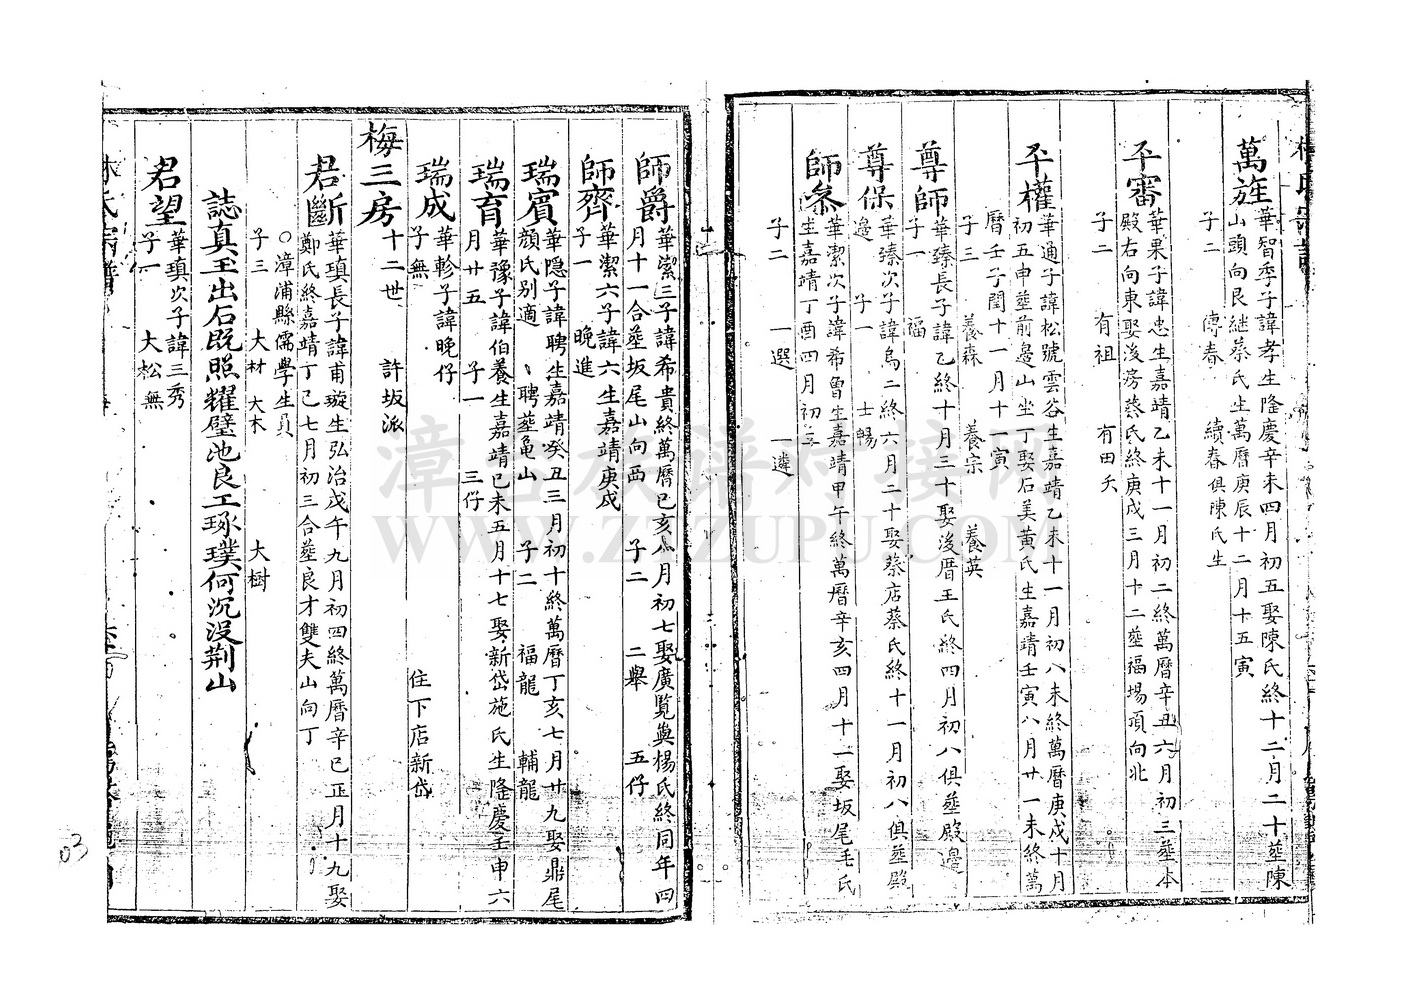 萬旌
華智季子諱孝生隆慶辛未四月初五娶陳氏終十二月二十塟陳
山頭向艮繼蔡氏生萬曆庚辰十二月十五寅
子二 傳春 續春俱陳氏生
丕審
華果子諱忠生嘉靖乙未十一月初二終萬曆辛丑六月初三塟本
殿右向東娶後房蔡氏終庚戌三月十二塟福場項向北
子二 有祖 有田夭
丕權
華通子諱松號雲谷生嘉靖乙未十一月初八未終萬曆庚戌十月
初五申塟前邊山坐丁娶石美黃氏生嘉靖壬寅八月廿一未終萬
曆壬子閏十一月十一寅
子三 養森 養宗 養英
尊師
華臻長子諱乙終十月三十娶後厝王氏終四月初八俱塟殿邊
子一 福
尊保
華臻次子諱烏二終六月二十娶蔡店蔡氏終十一月初八俱塟殿
子一 士暢
師參
華潔次子諱希曾生嘉靖甲午終萬曆辛亥四月十一娶坂尾毛氏
生嘉靖丁酉四月初三
子二 一選 一遴
師爵
華潔三子諱希貴終萬曆己亥八月初七娶廣覧㠘楊氏終同年四
月十一合塟坂尾山向西 子二 二舉 五仔
師齊
華潔六子諱六生嘉靖庚戌
子一 晚進
瑞賓
華隱子諱聘生嘉靖癸丑三月初十終萬曆丁亥七月廿九娶鼎尾
顏氏別適 聘塟龜山 子二 福龍 輔龍
瑞育
華豫子諱伯養生嘉靖己未五月十七娶新岱施氏生隆慶壬申六
月廿五 子一 三仔
瑞成
華軫子諱晚仔
子無 住下店新岱
梅三房
十二世 許坂派
君斷
華瑱長子諱甫璇生弘治戊午九月初四終萬曆辛巳正月十九娶
鄭氏終嘉靖丁巳七月初三合塟良才雙夫山向丁
○漳浦縣儒學生員
子三 大材 大木 大樹
誌真玉出石既照耀璧池良工琢璞何沉没荆山
君望
華瑱次子諱三秀
子一 大松無
03
漳台族谱对接网
WWW.ZTZUPU.COM